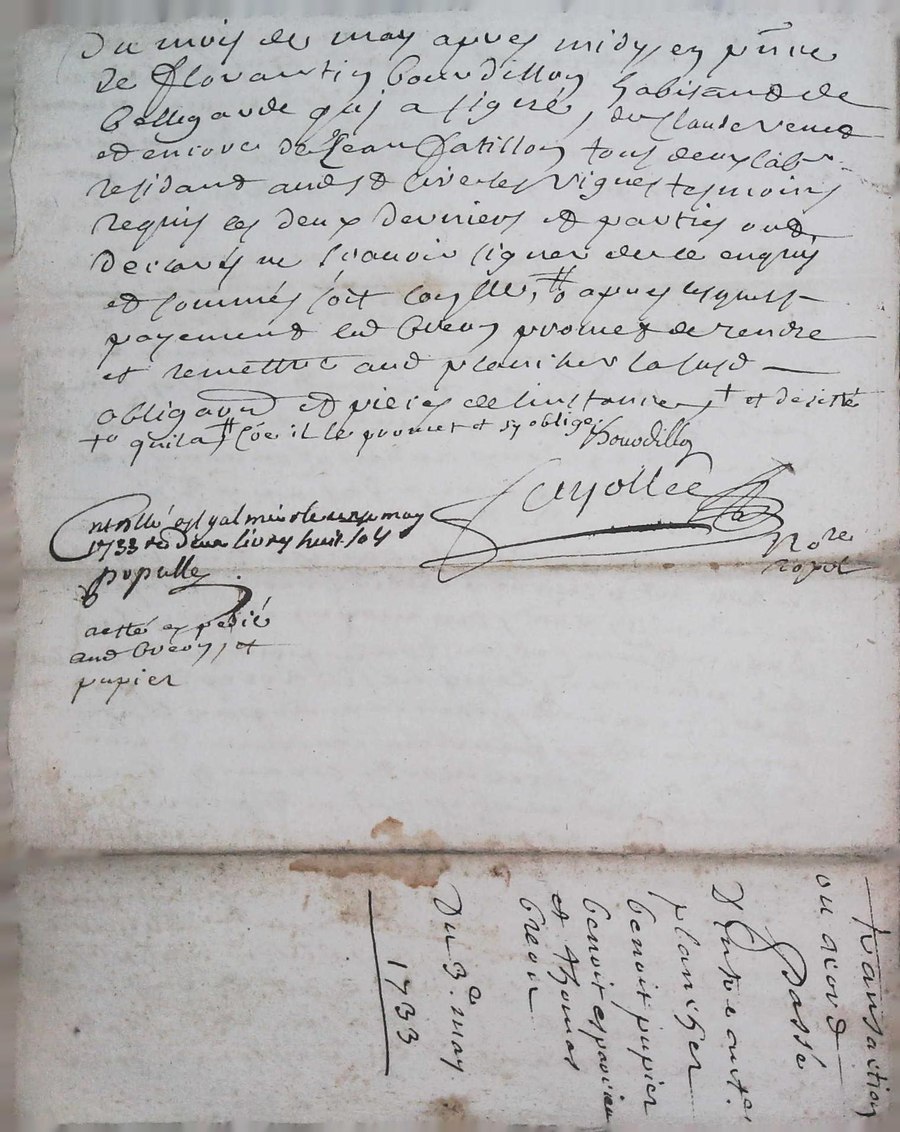 Du mois de may apres midy en pnce
de Florantin Bourdillon habitand de
Bellegarde quj a signé, de Claude
et encores de Jean tous deux
residand aud st vignes tesmoins
requis ces deux derniers et parties ond
declarés ne scavoir signer de ce enquis
et sommés soit apres
payement led Breoy promet de rendre
et remettre aud planchet la susd
obligaon et pieces de linstance + et desisté
+ quila # il le promet et sy oblige
Bourdillon
Cayollee
Nore
royal
Controllé may
1733 rs deux livres huit sols
Populle
acte expedié
aud Breoy, et
papier
transaction
ou acord
passé
Entre ante
planchet
benoit papier
benoit
et thomas
breoir
Du 3e may
1733